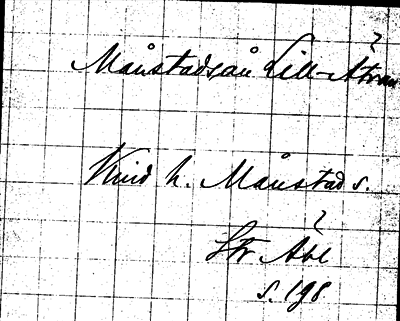 ?
Månstadsån Lill-Ätran
Kind h. Månstad s.
?
Str Äbl
s. 198